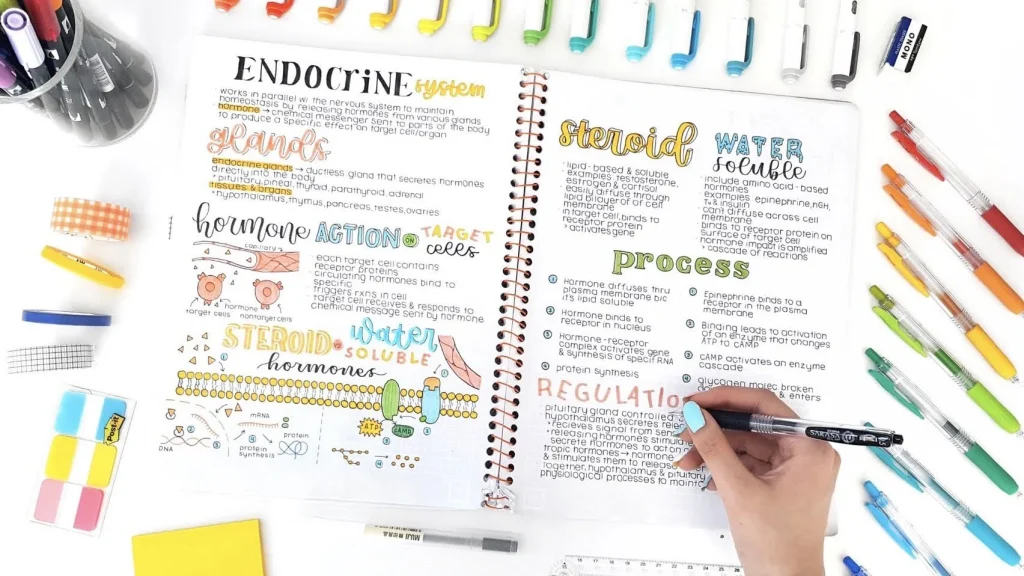 ENDOCRINE system
works in parallel w/ the nervous system to maintain
homeostasis by releasing hormones from various glands
hormone → chemical messenger sent to parts of the body
to produce a specific effect on target cell/organ
glands
endocrine glands → ductless gland that secretes hormones
directly into the body
pituitary, pineal, thyroid, parathyroid, adrenal
tissues & organs
hypothalamus, thymus, pancreas, testes, ovaries
hormone ACTION on TARGET
cells
capillary
hormone
target cells
nontarget cells
each target cell contains
receptor proteins
circulating hormones bind to
specific
triggers rxns in cell
target cell receives & responds to
chemical message sent by hormone
STEROID or water
SOLUBLE
hormones
ATP
CAMP
mRNA
DNA
protein
synthesis
protein
steroid
lipid-based & soluble
examples: testosterone,
estrogen & cortisol
easily diffuse through
lipid bilayer of cell
membrane
in target cell, binds to
receptor protein
activates gene
WATER
soluble
include amino acid-based
hormones
examples: epinephrine, HGH,
T4 & insulin
can't diffuse across cell
membrane
binds to receptor protein on
surface of target cell
hormone impact is amplified
cascade of reactions
process
1 Hormone diffuses thru
plasma membrane b/c
it's lipid soluble
2 Hormone binds to
receptor in nucleus
3 Hormone-receptor
complex activates gene
& synthesis of specif RNA
4 protein synthesis
1 Epinephrine binds to a
receptor in the plasma
membrane
2 Binding leads to activation
of an enzyme that changes
ATP to CAMP
3 CAMP activates an enzyme
cascade
4 glycogen molec. broken
& enters
REGULATIO
pituitary gland controlled
hypothalamus secretes
recieves signal from
releasing hormones stimula
secrete hormones to
tropic hormones → hormone
& stimulates them to release
together, hypothalamus & pituitary
physiological processes to maint
MONO
Post-it
SARASA
MUJI